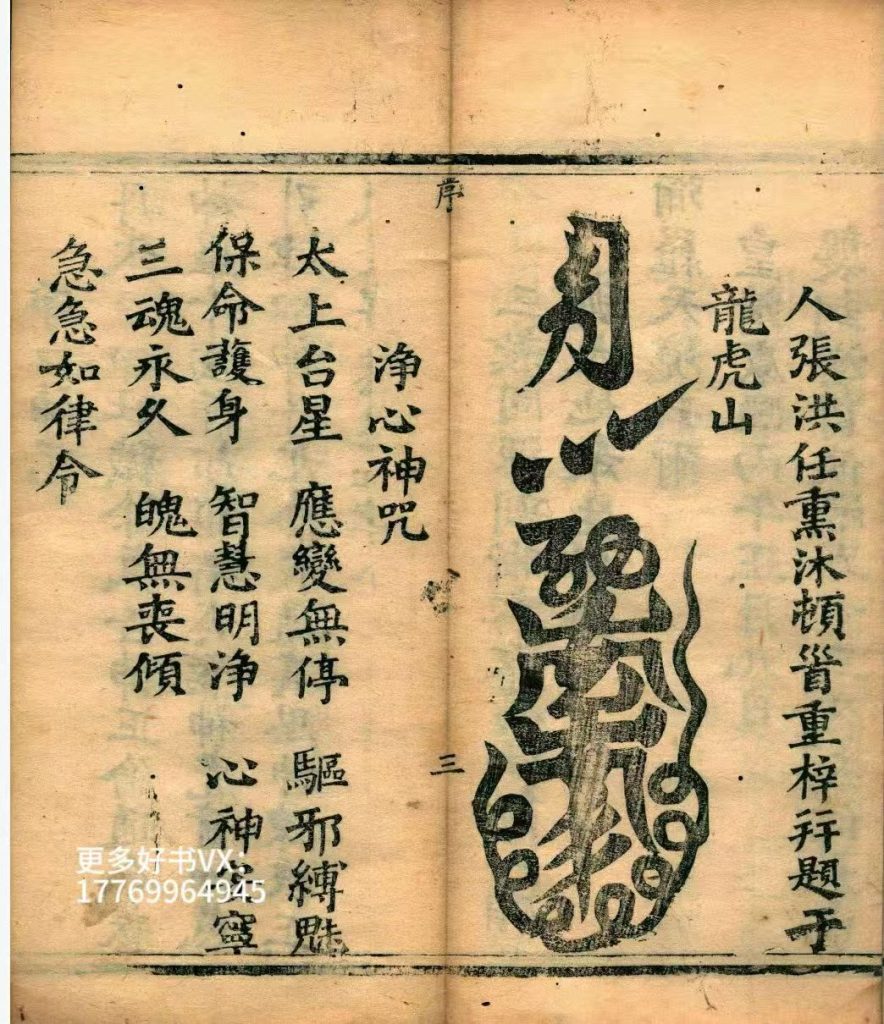 人張洪任熏沐頓首重梓并題于
龍虎山
序
三
淨心神咒
太上台星 應變無停 驅邪縛魅
保命護身 智慧明淨 心神安寧
三魂永久 魄無喪傾
急急如律令
更多好书VX:
17769964945